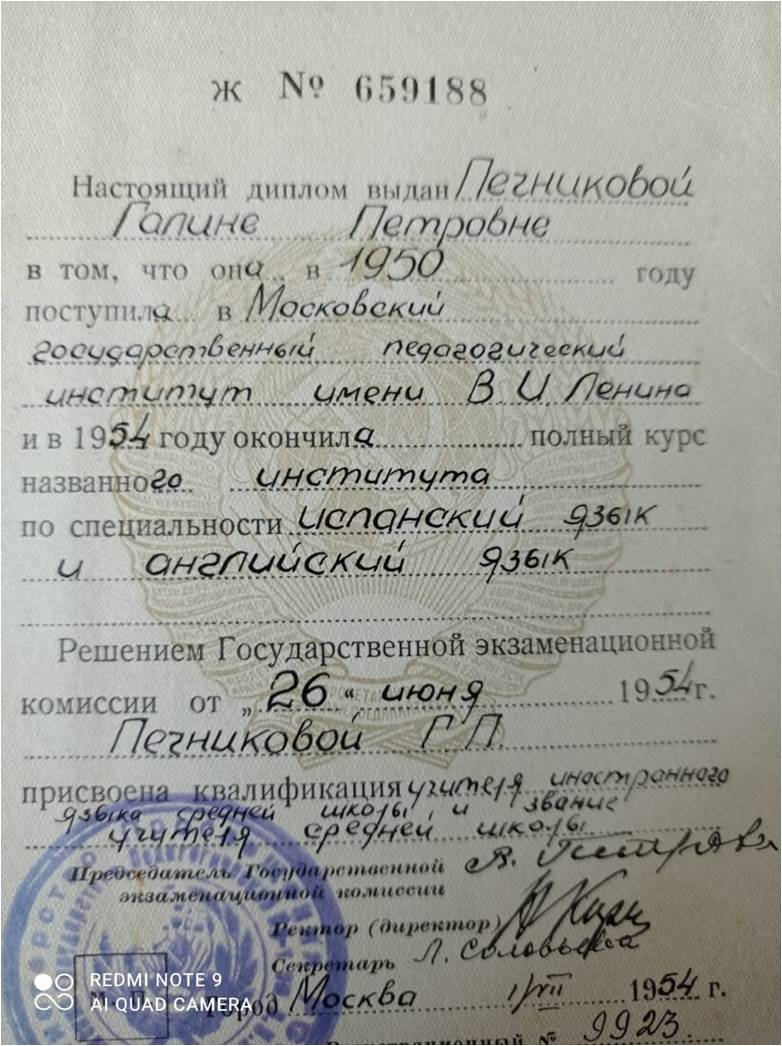 Ж № 659188
Настоящий диплом выдан Печниковой
Галине Петровне
в том, что она в 1950 году
поступила в Московский
государственный педагогический
институт имени В. И. Ленина
и в 1954 году окончила полный курс
названного института
по специальности испанский язык
и английский язык
Решением Государственной экзаменационной
комиссии от „26“ июня 1954 г.
Печниковой Г. П.
присвоена квалификация учителя иностранного
языка средней школы и звание
учителя средней школы
Председатель Государственной
экзаменационной комиссии
Ректор (директор)
Секретарь Л. Соловьева
Город Москва 1/VII 1954 г.
М. П.
Регистрационный № 9923.
REDMI NOTE 9
AI QUAD CAMERA